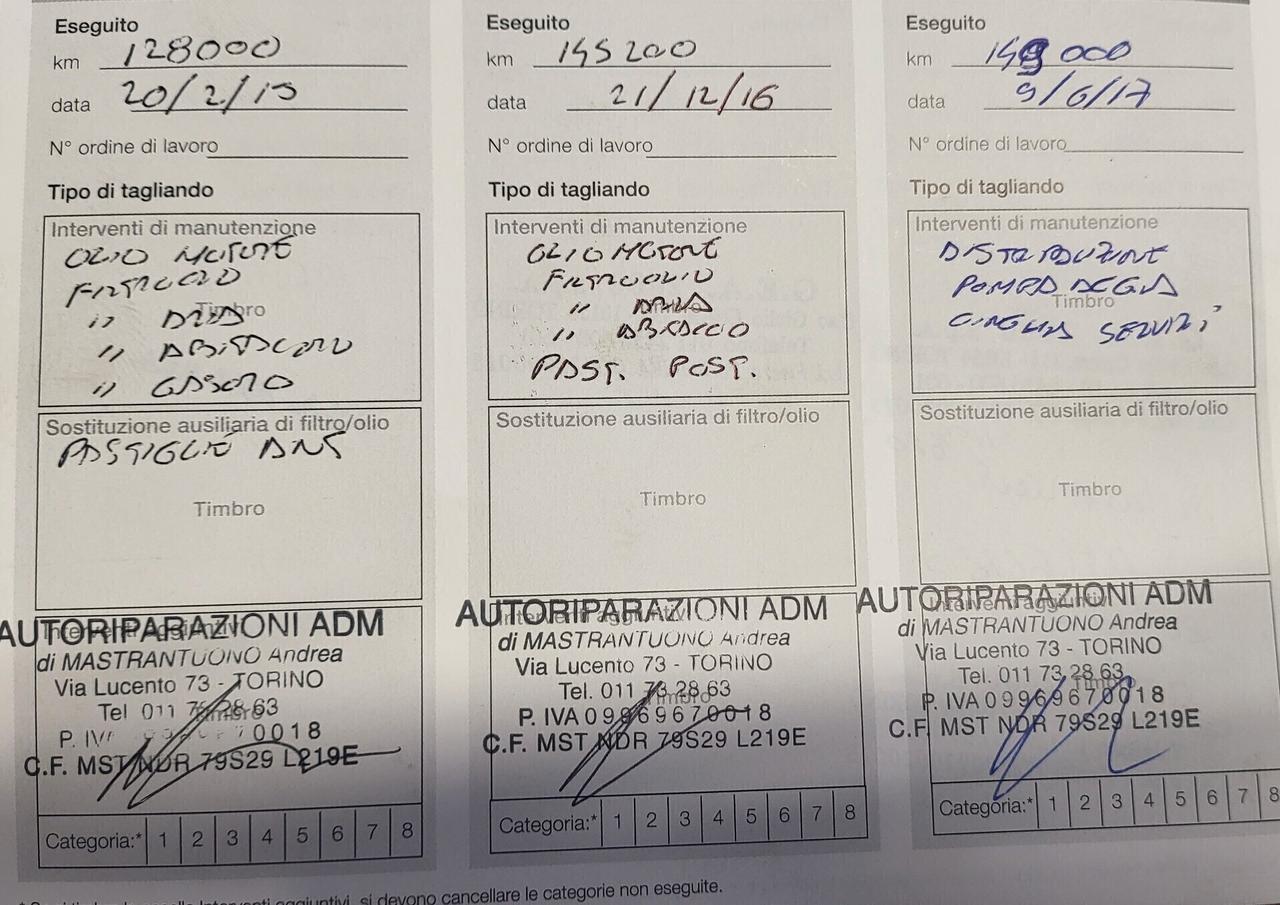 Eseguito
km 128000
data 20/2/15
N° ordine di lavoro
Tipo di tagliando
Interventi di manutenzione
OLIO MOTORE
FILTRO OLIO
Timbro
" ARIA
" ABITACOLO
" GASOLIO
Sostituzione ausiliaria di filtro/olio
PASTIGLIE ANT
Timbro
Interventi aggiuntivi
AUTORIPARAZIONI ADM
di MASTRANTUONO Andrea
Via Lucento 73 - TORINO
Tel 011 73 28 63
Timbro
P. IVA 0018
C.F. MST NDR 79S29 L219E
Categoria:* 1 2 3 4 5 6 7 8
Eseguito
km 145200
data 21/12/16
N° ordine di lavoro
Tipo di tagliando
Interventi di manutenzione
OLIO MOTORE
FILTRO OLIO
Timbro
" ARIA
" ABITACOLO
PAST. POST.
Sostituzione ausiliaria di filtro/olio
Timbro
Interventi aggiuntivi
AUTORIPARAZIONI ADM
di MASTRANTUONO Andrea
Via Lucento 73 - TORINO
Tel. 011 73 28 63
Timbro
P. IVA 09969670018
C.F. MST NDR 79S29 L219E
Categoria:* 1 2 3 4 5 6 7 8
Eseguito
km 149 000
data 9/6/17
N° ordine di lavoro
Tipo di tagliando
Interventi di manutenzione
DISTRIBUZIONE
POMPA ACQUA
Timbro
CINGHIA SERVIZI
Sostituzione ausiliaria di filtro/olio
Timbro
Interventi aggiuntivi
AUTORIPARAZIONI ADM
di MASTRANTUONO Andrea
Via Lucento 73 - TORINO
Tel. 011 73 28 63
Timbro
P. IVA 09969670018
C.F. MST NDR 79S29 L219E
Categoria:* 1 2 3 4 5 6 7 8
interventi aggiuntivi, si devono cancellare le categorie non eseguite.